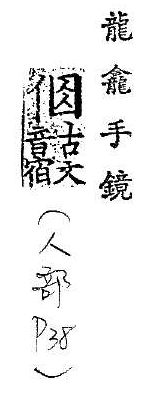 龍龕手鏡
古文
音宿
（人部P38）